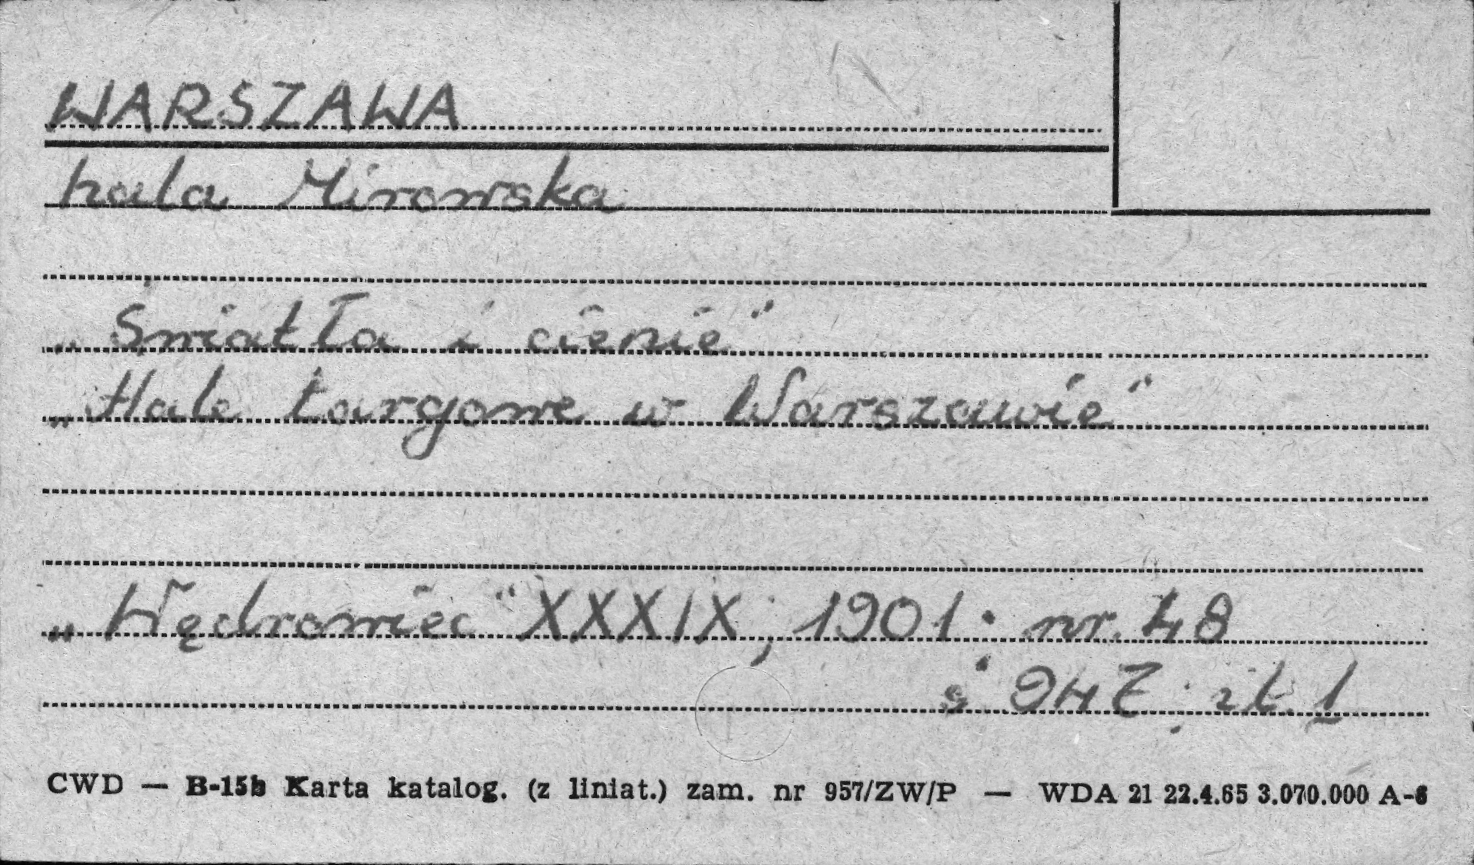 WARSZAWA
hala Mirowska
„Światła i cienie"
„Hale targowe w Warszawie"
„Wędrowiec" XXXIX, 1901. nr. 48
s. 947; it. 1
CWD — B-15b Karta katalog. (z liniat.) zam. nr 957/ZW/P — WDA 21 22.4.65 3.070.000 A-6